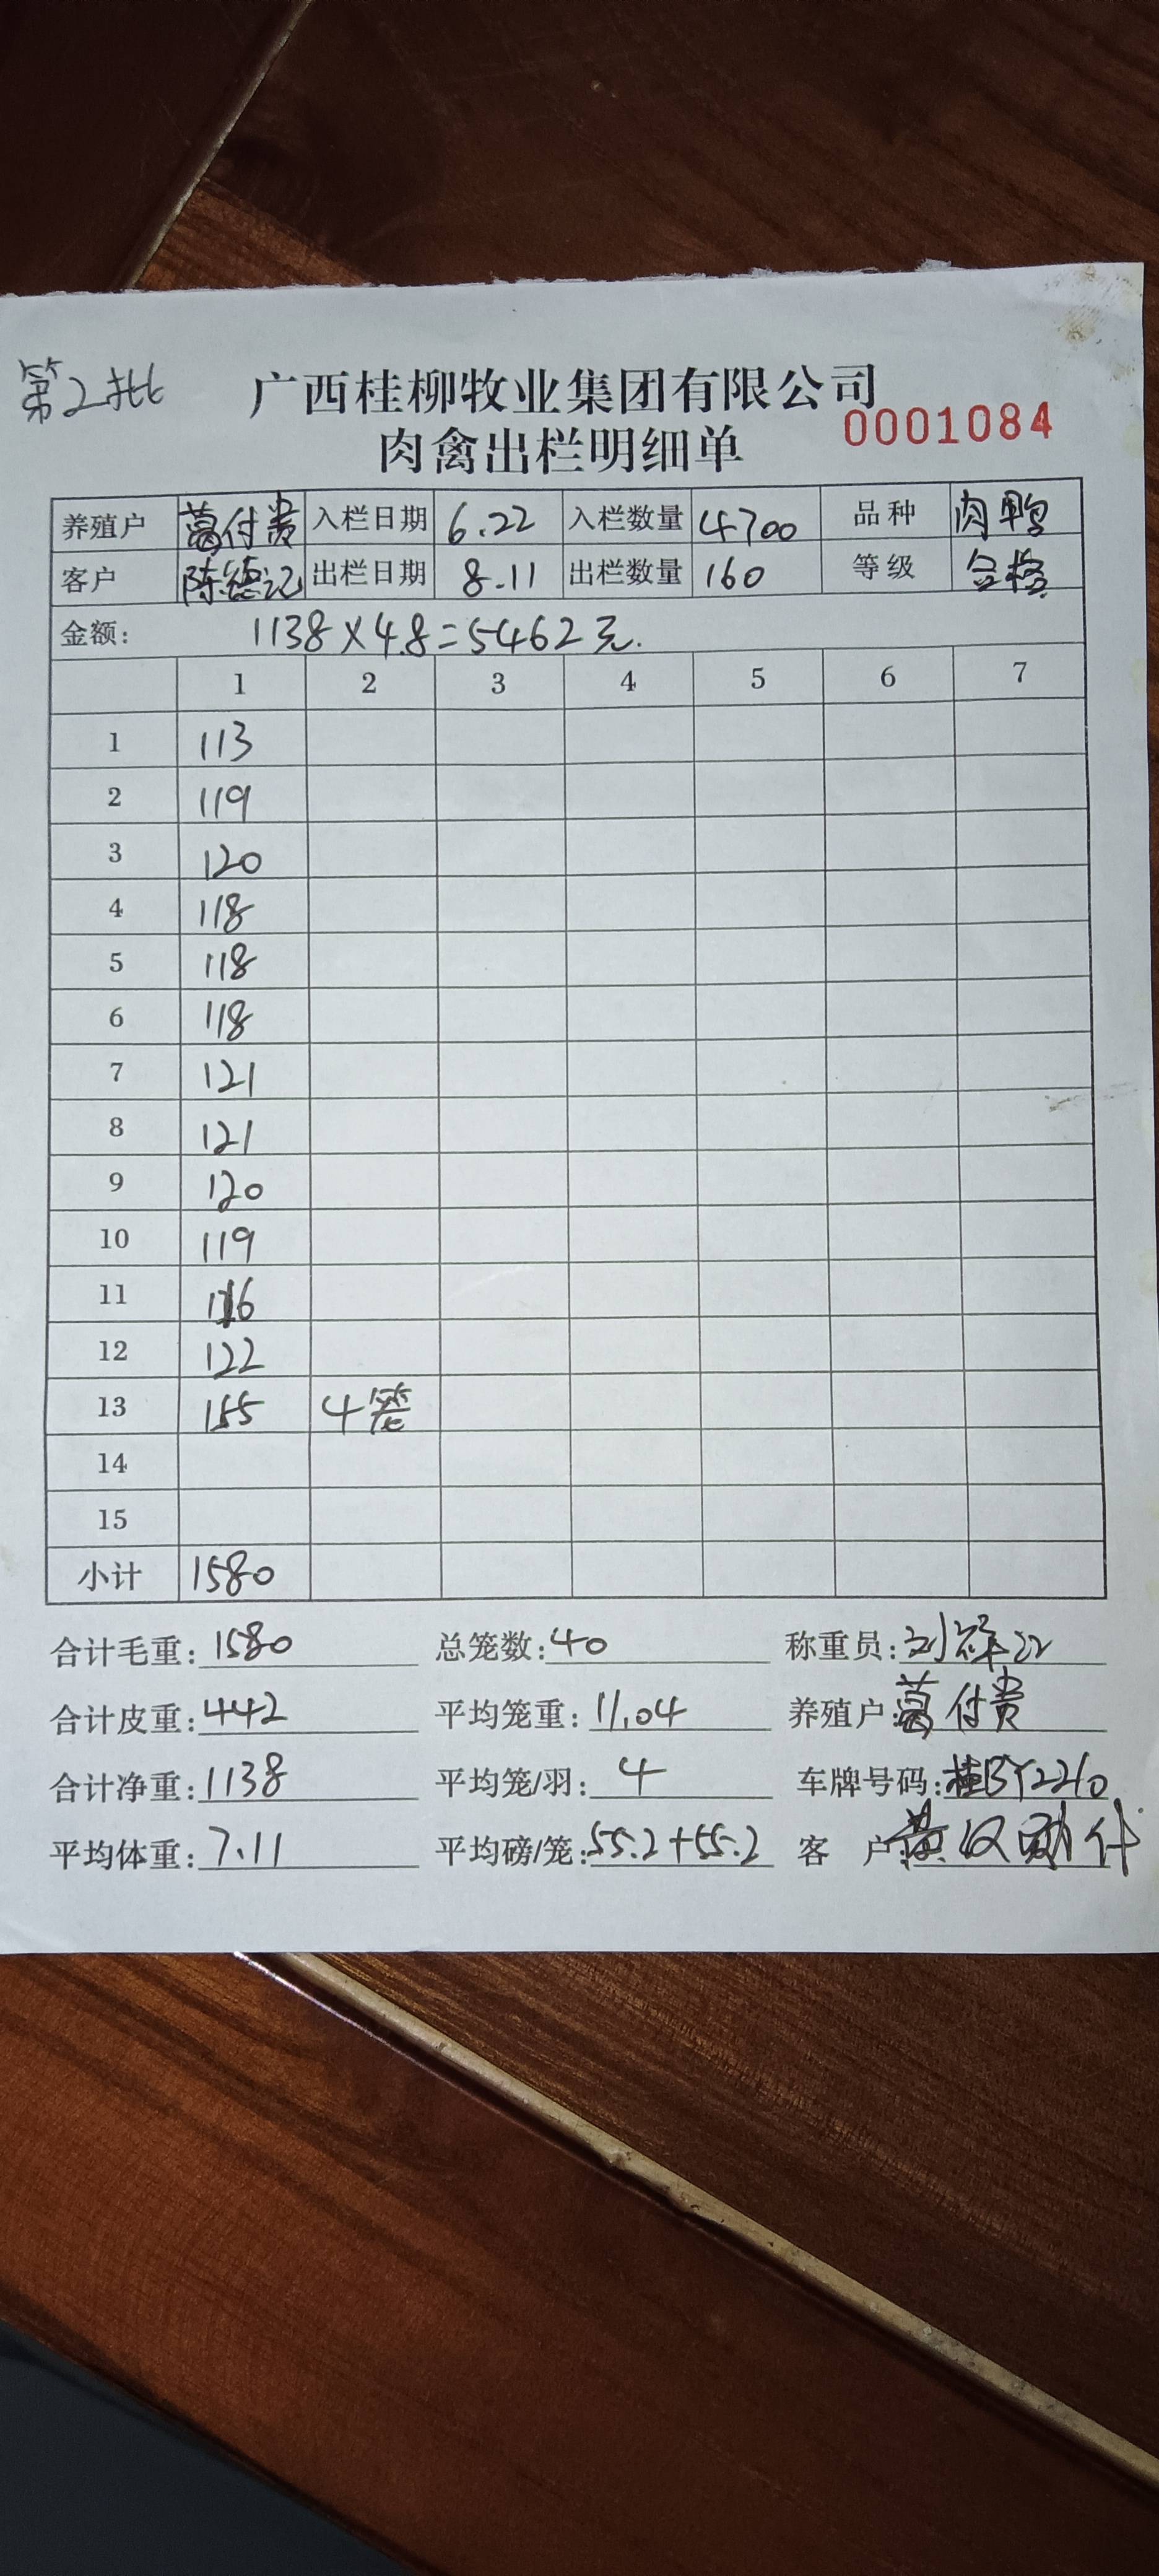 第2批
广西桂柳牧业集团有限公司
0001084
肉禽出栏明细单
养殖户 葛付贵 入栏日期 6.22 入栏数量 4700 品种 肉鸭
客户 陈德记 出栏日期 8.11 出栏数量 160 等级 合格
金额: 1138×4.8=5462元.
1 2 3 4 5 6 7
1 113
2 119
3 120
4 118
5 118
6 118
7 121
8 121
9 120
10 119
11 116
12 122
13 155 4笼
14
15
小计 1580
合计毛重: 1580 总笼数: 40 称重员:
合计皮重: 442 平均笼重: 11.04 养殖户: 葛付贵
合计净重: 1138 平均笼/羽: 4 车牌号码: 桂BY2210
平均体重: 7.11 平均磅/笼: 55.2+55.2 客户: